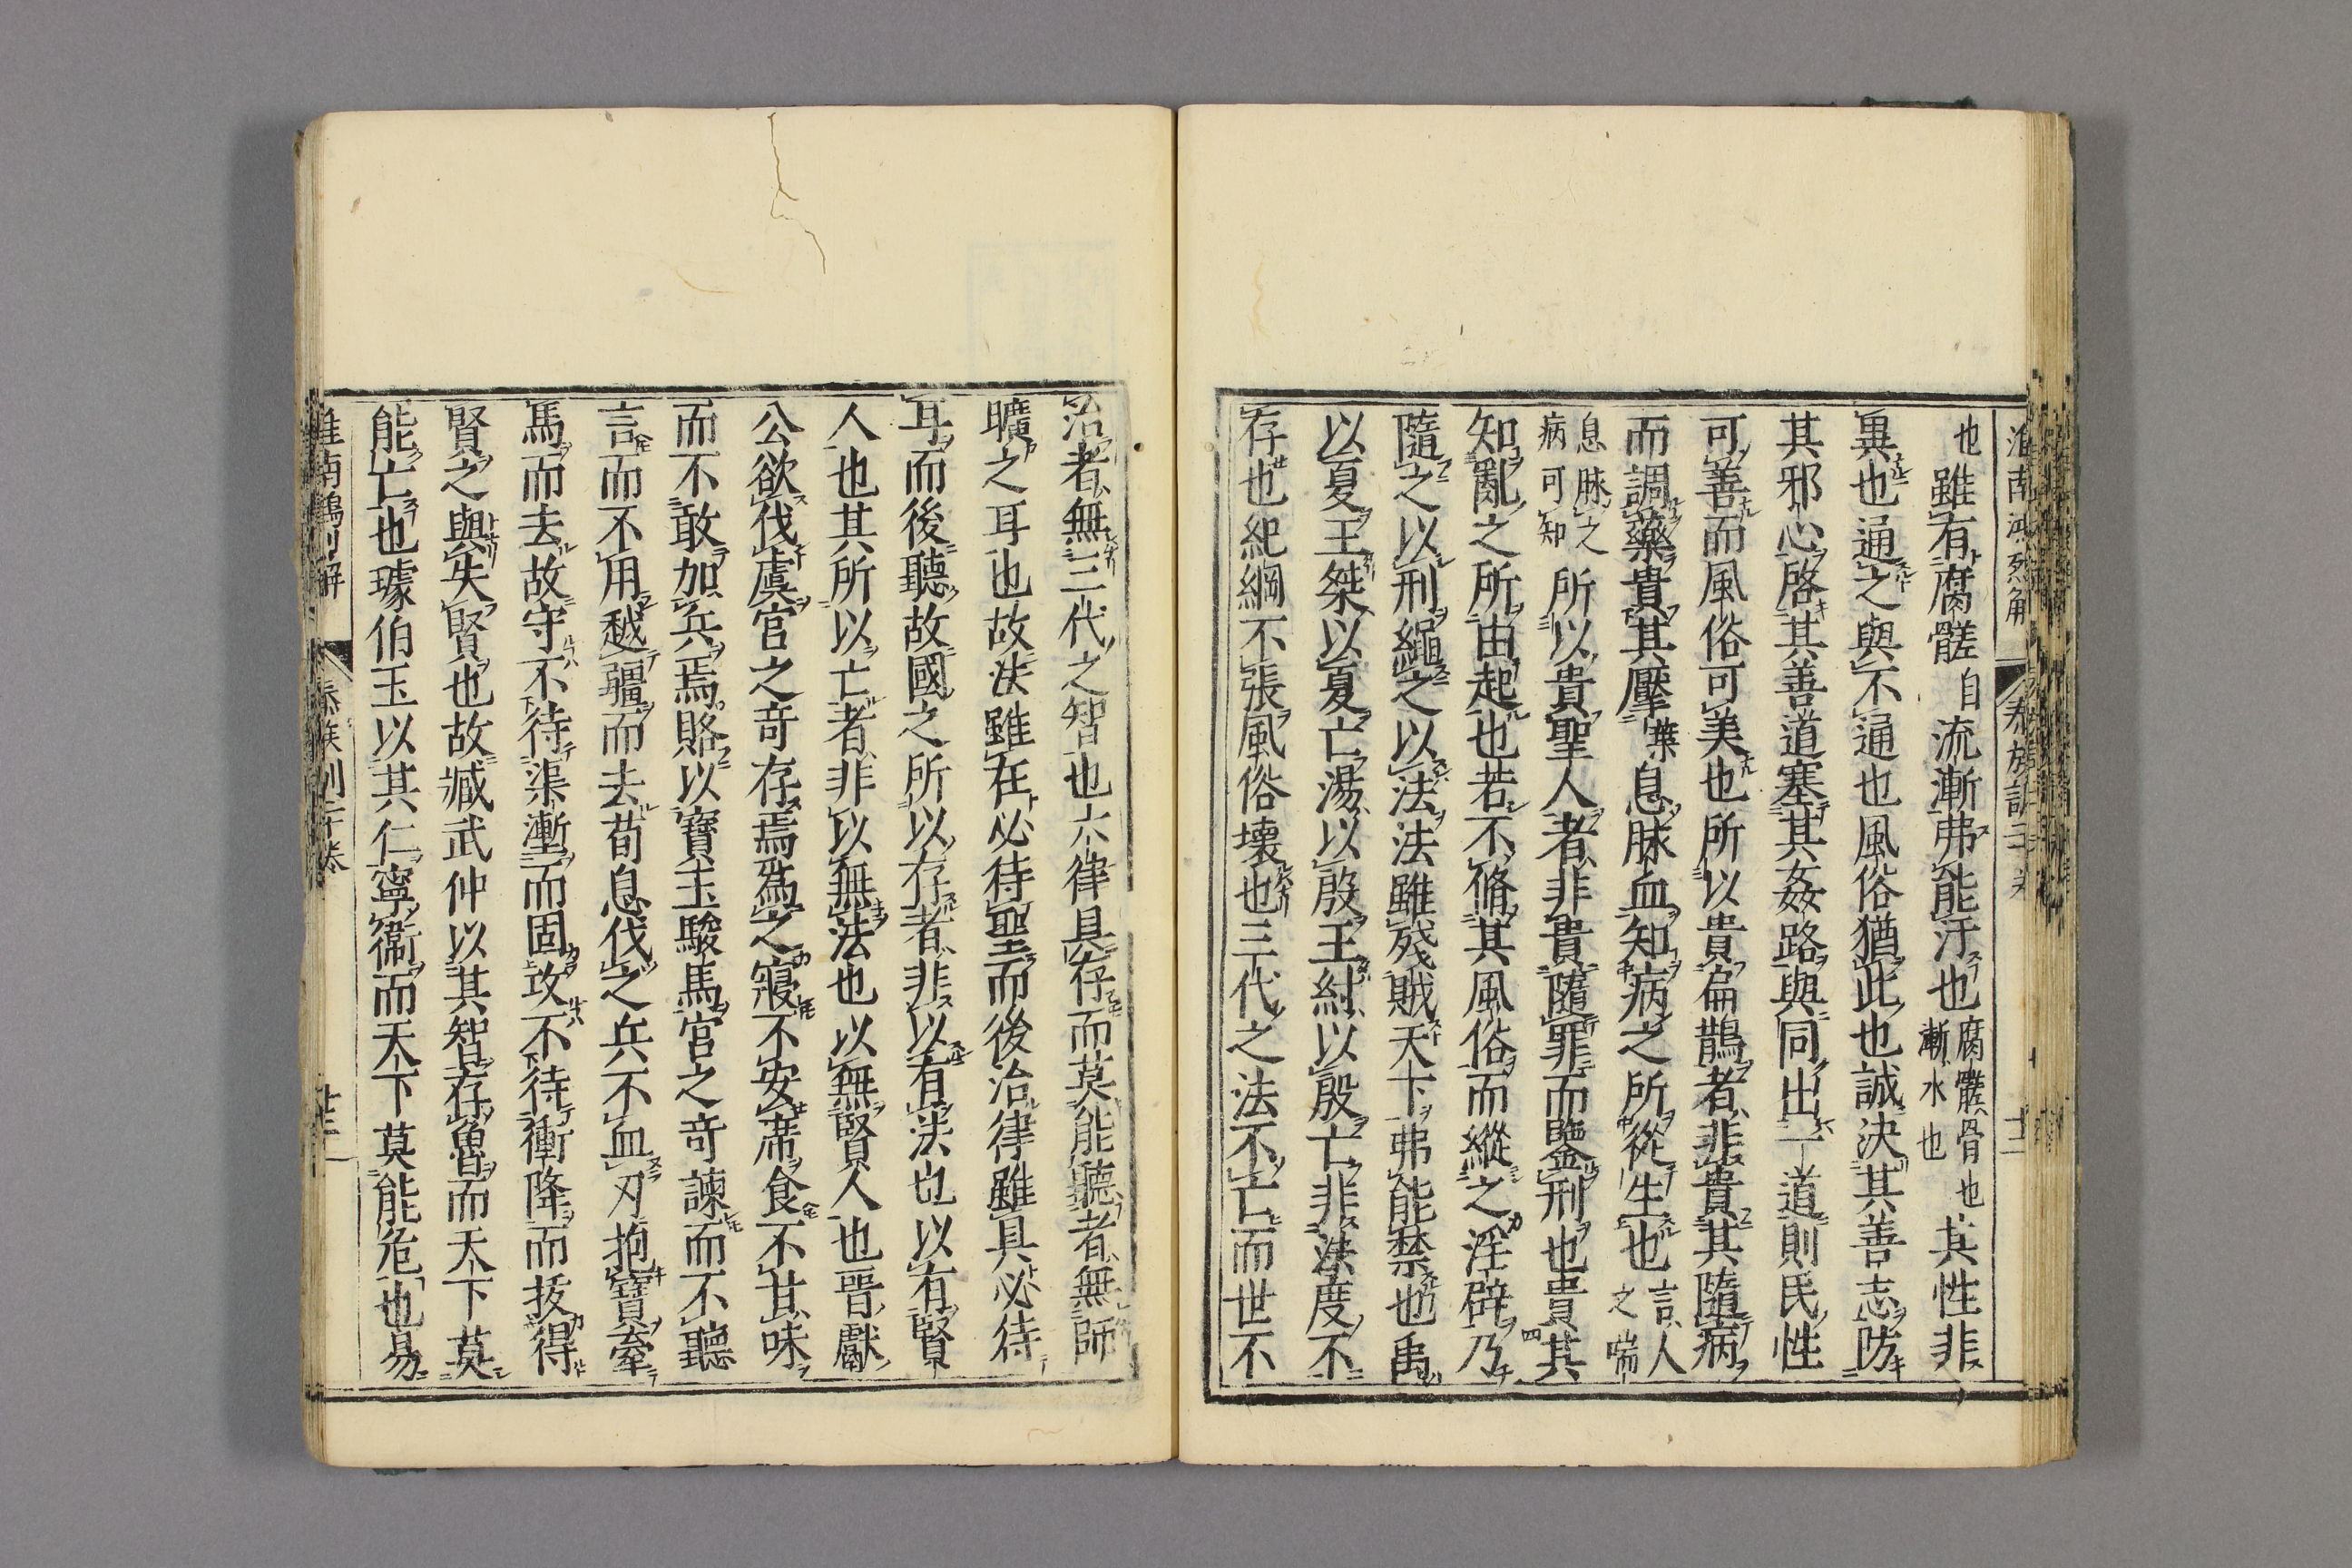 也雖有腐髊自流漸弗能汙也腐髊骨也漸水也其性非
異也通之與不通也風俗猶此也誠決其善志防
其邪心啓其善道塞其姦路與同出一道則民性
可善而風俗可美也所以貴扁鵲者非貴其隨病
而調藥貴其擪葉息脉血知病之所從生也言人之喘
息脉之病可知所以貴聖人者非貴隨罪而鑒刑也貴其
知亂之所由起也若不脩其風俗而縱之淫辟乃
隨之以刑繩之以法法雖殘賊天下弗能禁也禹
以夏王桀以夏亡湯以殷王紂以殷亡非法度不
存也紀綱不張風俗壞也三代之法不亡而世不
治者無三代之智也六律具存而莫能聽者無師
曠之耳也故法雖在必待聖而後治律雖具必待
耳而後聽故國之所以存者非以有法也以有賢
人也其所以亡者非以無法也以無賢人也晉獻
公欲伐虞宮之奇存焉爲之寢不安席食不甘味
而不敢加兵焉賂以寶玉駿馬宮之奇諫而不聽
言而不用越疆而去荀息伐之兵不血刃抱寶牽
馬而去故守不待渠壍而固攻不待衝降而拔得
賢之與失賢也故臧武仲以其智存魯而天下莫
能亡也璩伯玉以其仁寧衞而天下莫能危也易